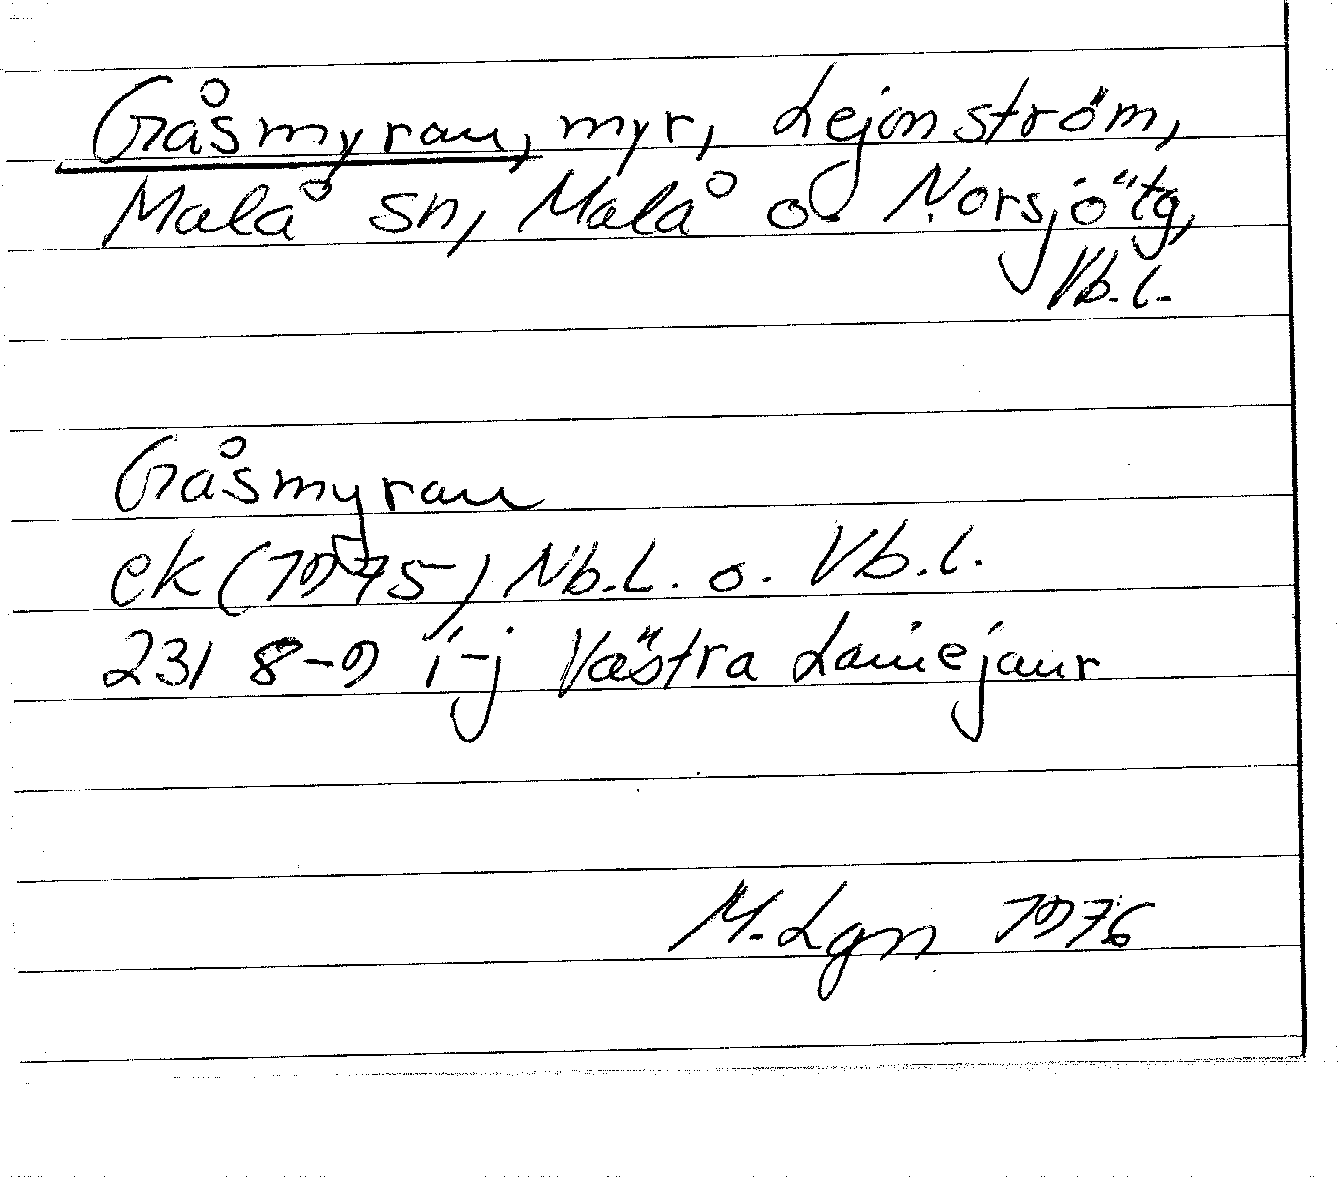 Gåsmyran, myr, Lejonström,
Malå sn, Malå o. Norsjö tg,
Vb.l.
Gåsmyran
ek (1975) Nb.l. o. Vb.l.
231 8-9 i-j Västra Lainejaur
M. Lgn 1976